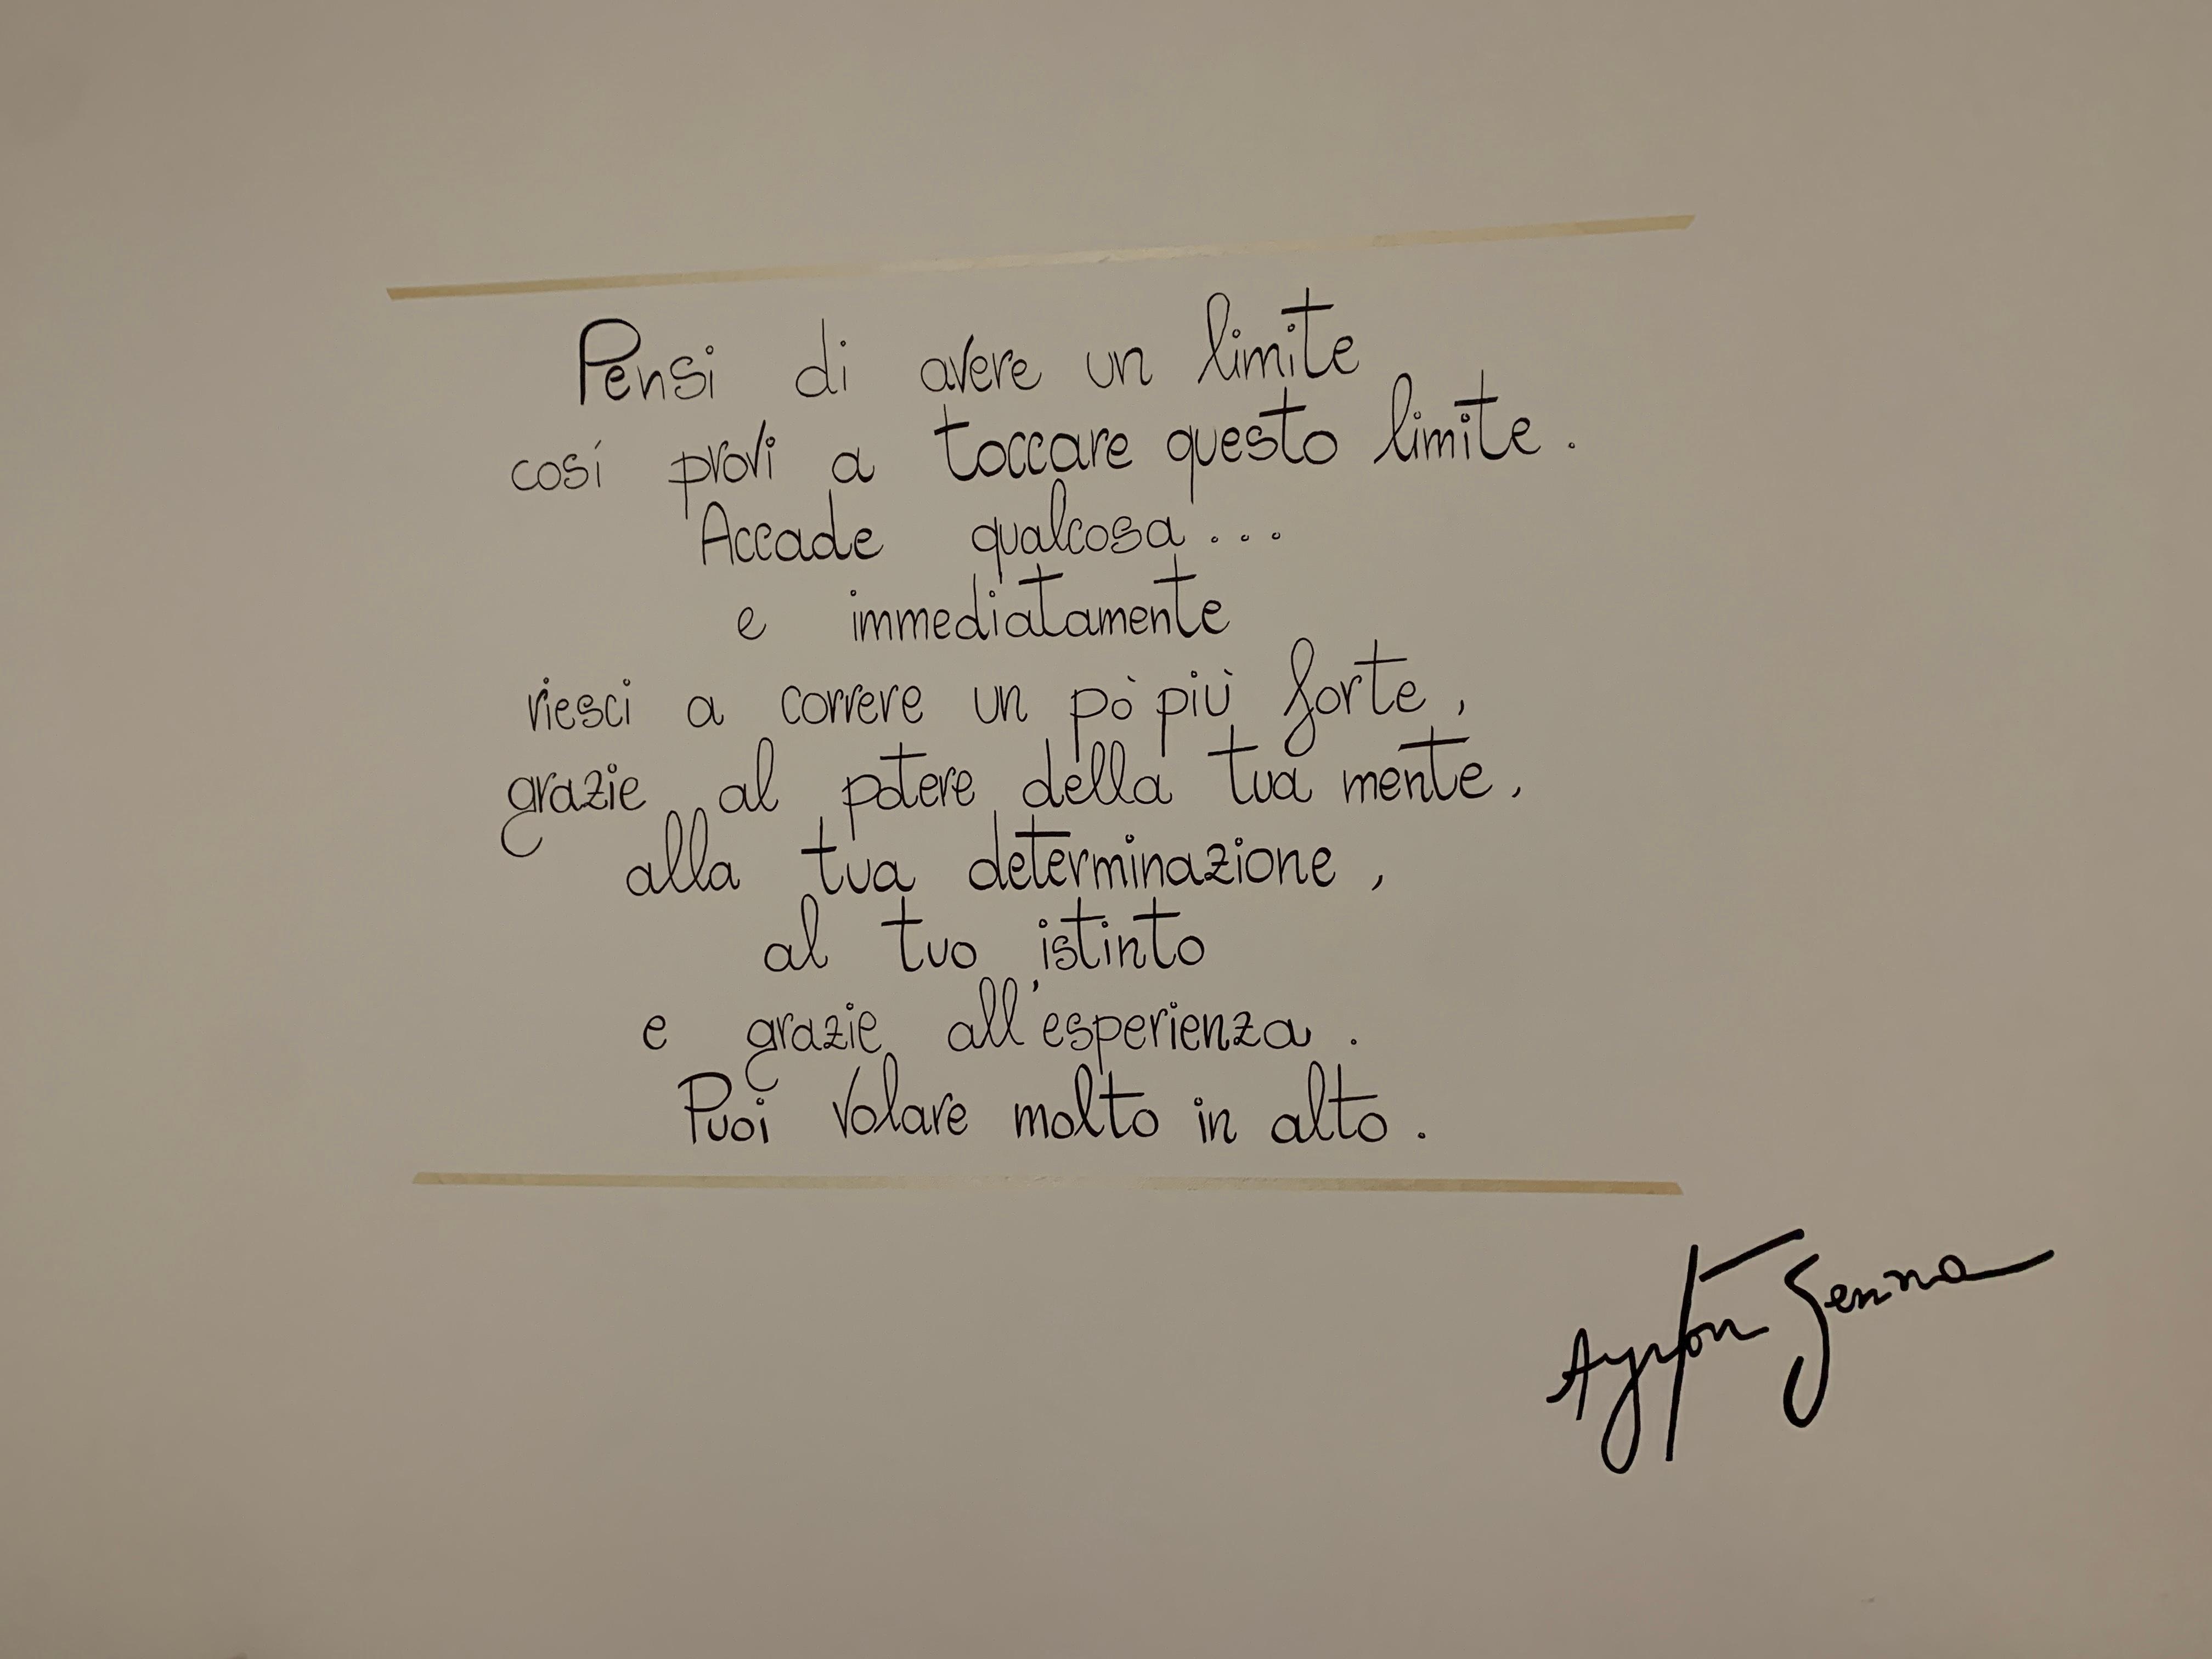 Pensi di avere un limite
così provi a toccare questo limite.
Accade qualcosa...
e immediatamente
riesci a correre un pò più forte,
grazie al potere della tua mente,
alla tua determinazione,
al tuo istinto
e grazie all'esperienza.
Puoi volare molto in alto.
Ayrton Senna